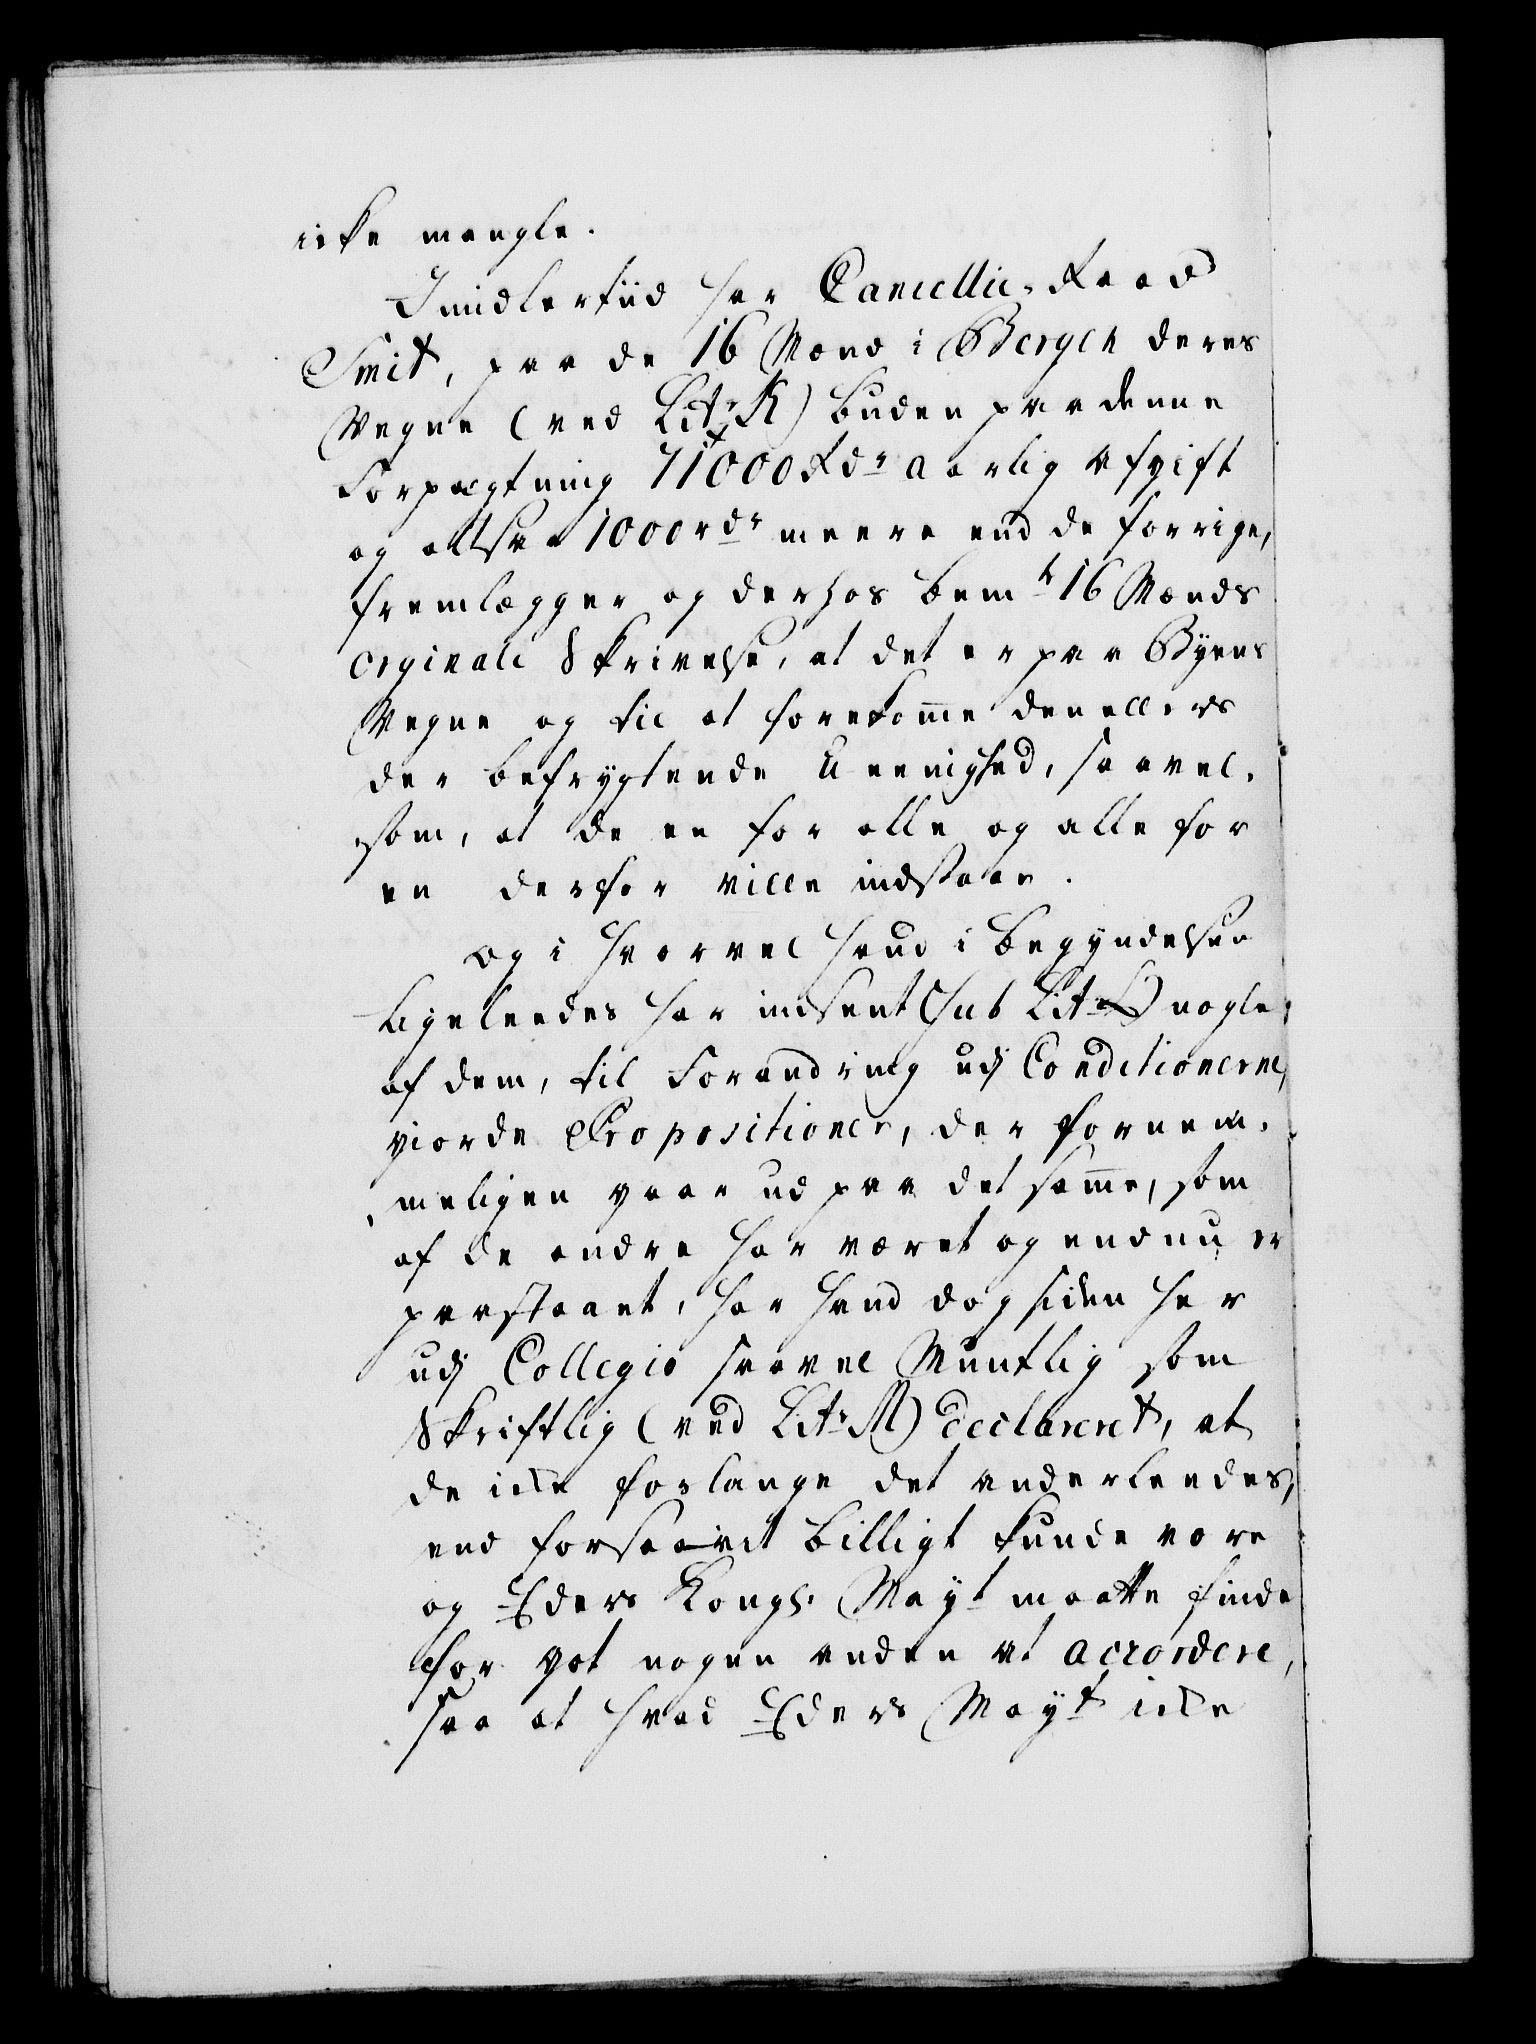 icke mangle.
Imidlertiid har Cancellie-Raad
Smit, paa de 16 Mænd i Bergen deres
Vegne (ved Litr K) buden paa denne
Forpagtning 71000 Rdr aarlig afgift
og altsaa 1000 rdr meere end de forrige,
fremlægger og derhos bemte 16 Mænds
orginale Skrivelse, at det er paa Byens
Vegne og til at forekomme den ellers
der befrygtende Ueenighed, saavel-
som, at de en for alle og alle for
en derfor ville indstaae.
Og i hvorvel hand i Begyndelsen
ligeleedes har indsent (sub Litr L) nogle
af dem, til Forandring udj Conditionerne,
giorde Propositioner, der fornem-
meligen gaar ud paa det samme, som
af de andre har været og endnu er
paastaaet, har hand dog siden her
udj Collegio saavel Muntlig som
Skriftlig (ved Litr M) declareret, at
de icke forlange det anderleedes,
end forsaavit billigt kunde være
og Eders Kongl. Mayt maatte finde
for got nogen anden at accordere,
saa at hvad Eders Mayt icke